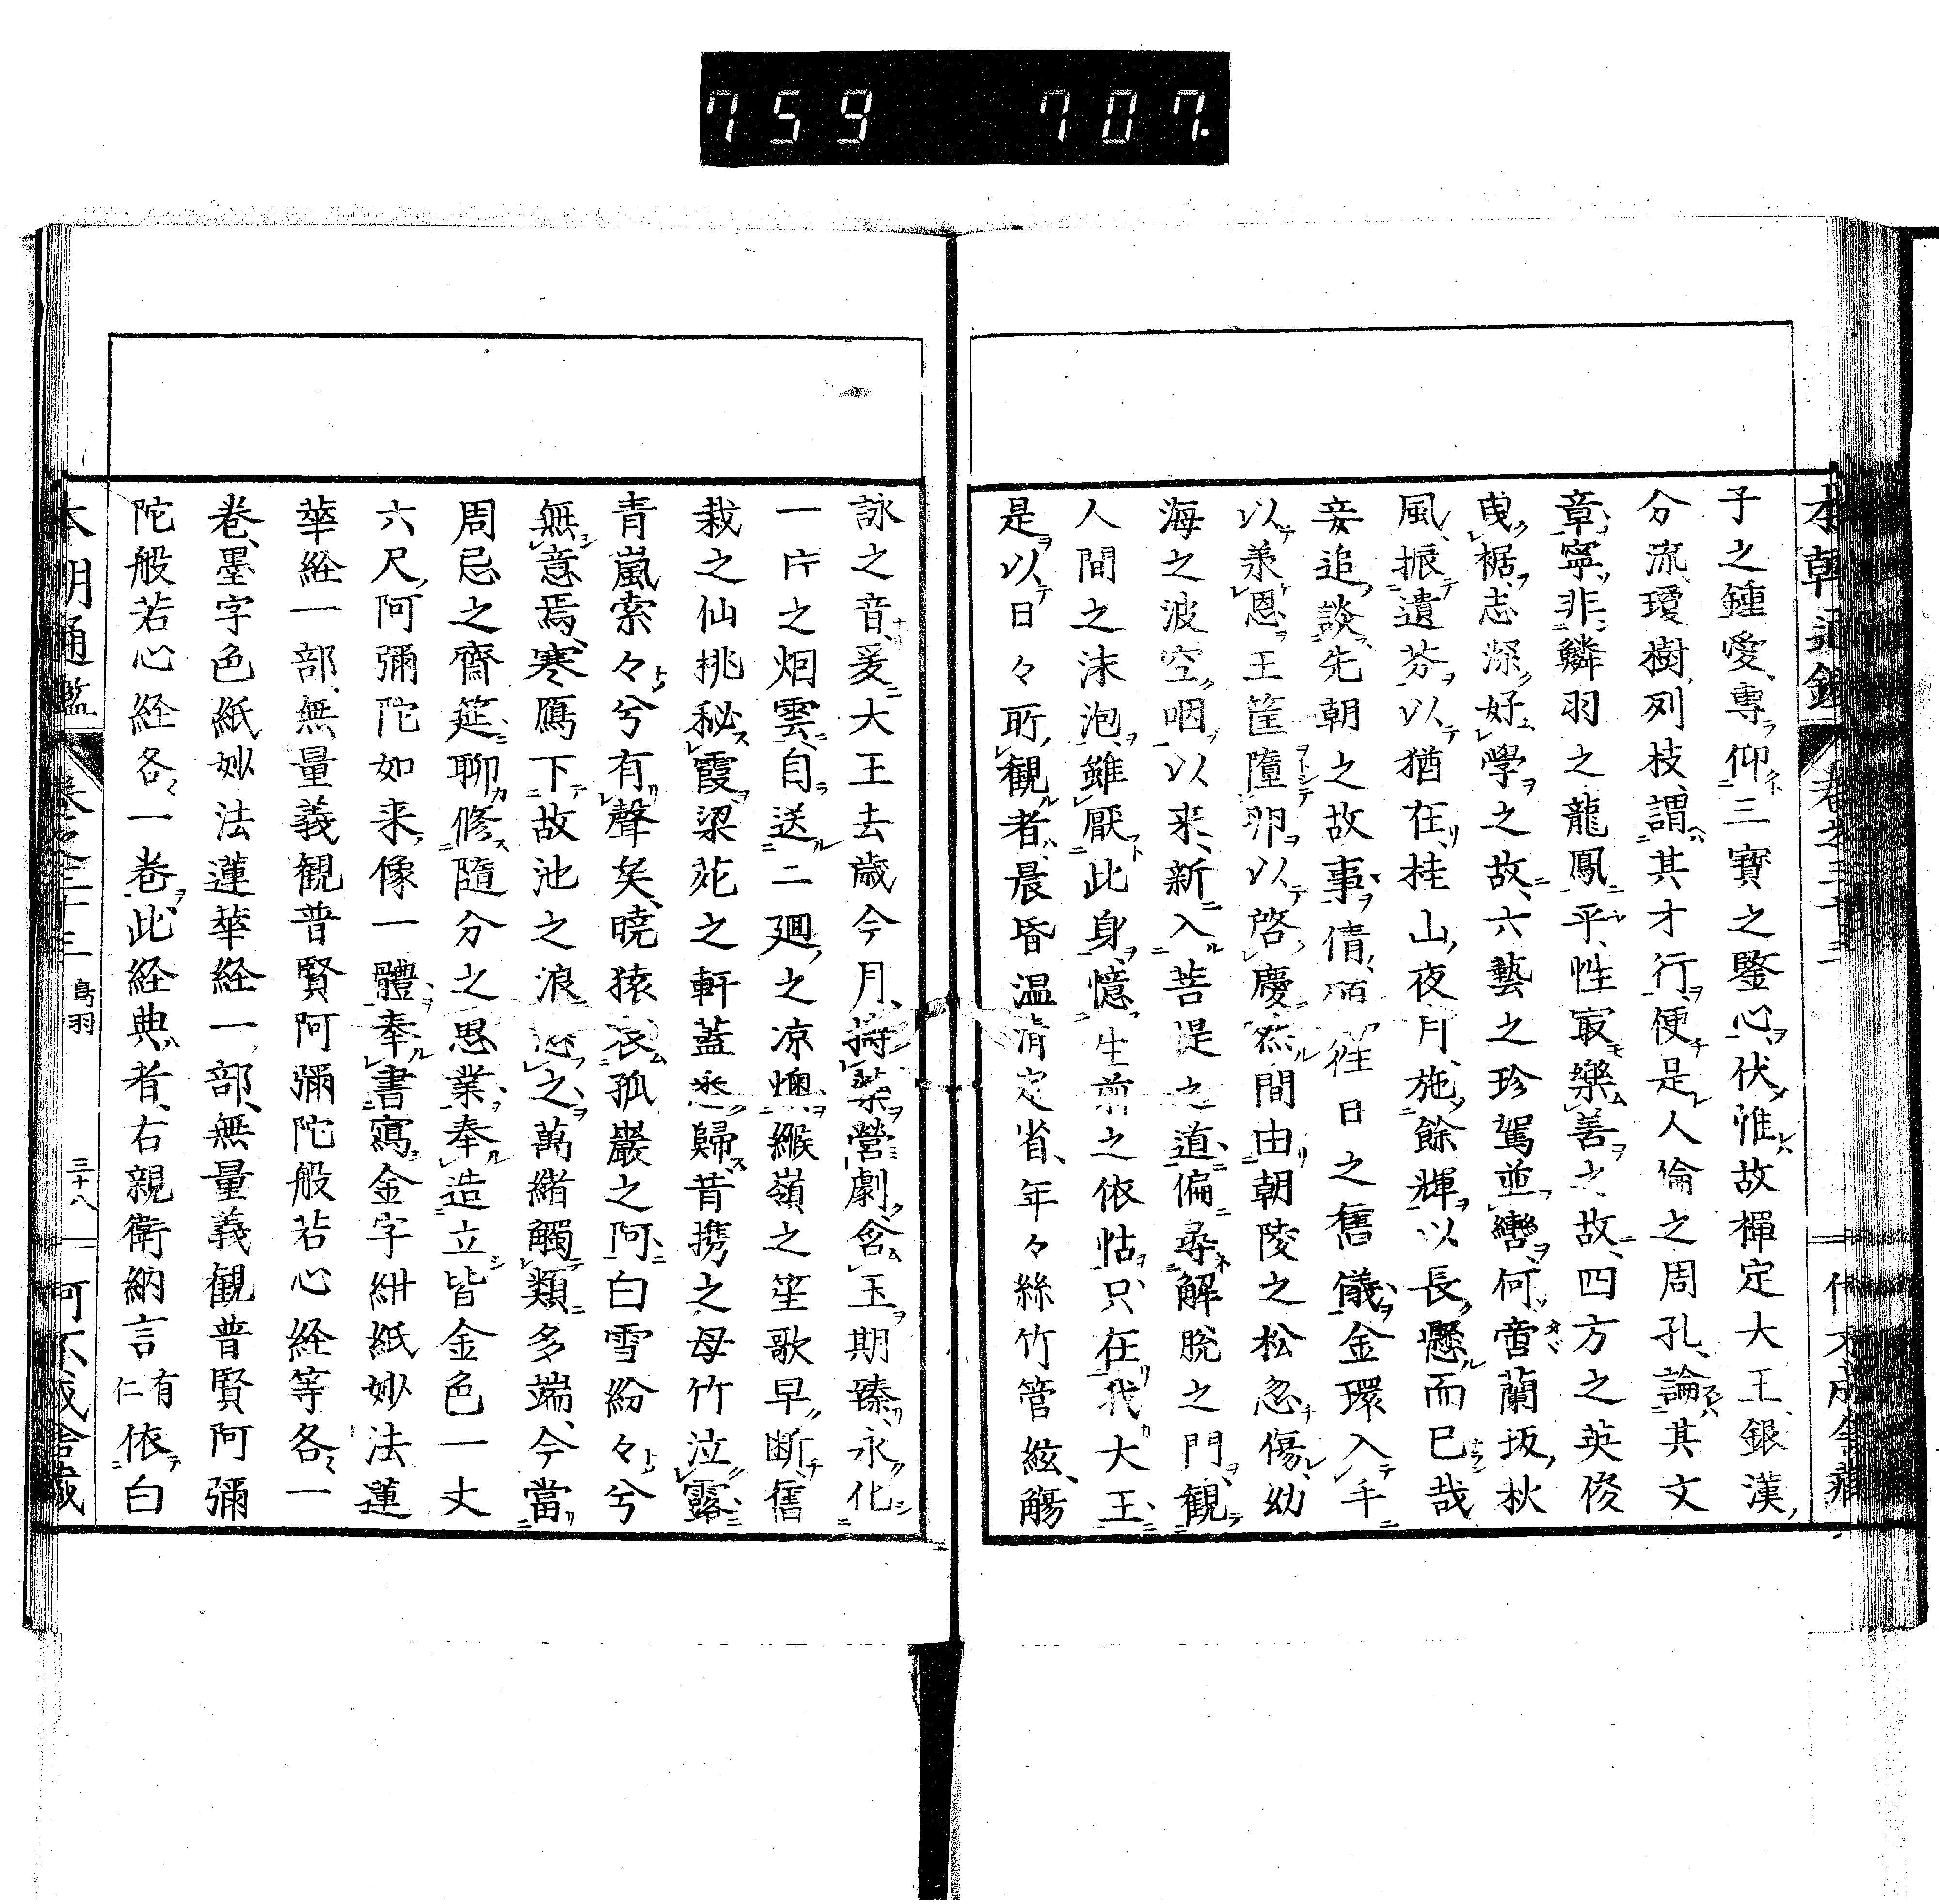 759 707.
子之鍾愛、專仰三寶之鑒心、伏惟故禪定大王、銀漢
分流、瓊樹列枝、謂其才行、便是人倫之周孔、論其文
章、寧非鱗羽之龍鳳乎、性㝡樂善之故、四方之英俊
曳裾、志深好學之故、六藝之珍駕並轡、何啻蘭坂秋
風、振遺芬以猶在、桂山夜月、施餘輝以長懸而已哉
妾追談先朝之故事、倩 往日之舊儀、金環入手
以羕恩、王筐墮卵以啓慶、然間由朝陵之松忽傷、幼
海之波空咽以来、新入菩提之道、偏尋解脱之門、観
人間之沫泡、雖厭此身、憶生前之依怙、只在我大王、
是以日々所観者、晨昏温凊定省、年々絲竹管絃、觴
詠之音、爰大王去歳今月、痔藥營劇、含玉期臻、永化
一片之烟雲、自送二廻之凉燠、緱嶺之笙歌早断、舊
栽之仙桃秘霞、梁苑之軒蓋悉歸、昔携之母竹泣露、
青嵐索々兮有聲矣、曉猿哀孤巖之阿、白雪紛々兮
無意焉、寒鴈下故池之浪、 之萬緒、觸類多端、今當
周忌之齋筵、聊修隨分之恩業、奉造立皆金色一丈
六尺、阿彌陀如来像一體、奉書寫金字紺紙妙法蓮
華経一部、無量義観普賢阿彌陀般若心経等各一
巻、墨字色紙妙法蓮華経一部、無量義観普賢阿彌
陀般若心経各一巻、此経典者、右親衛納言有仁依白
本朝通鑑 巻之三十三 鳥羽 三十八